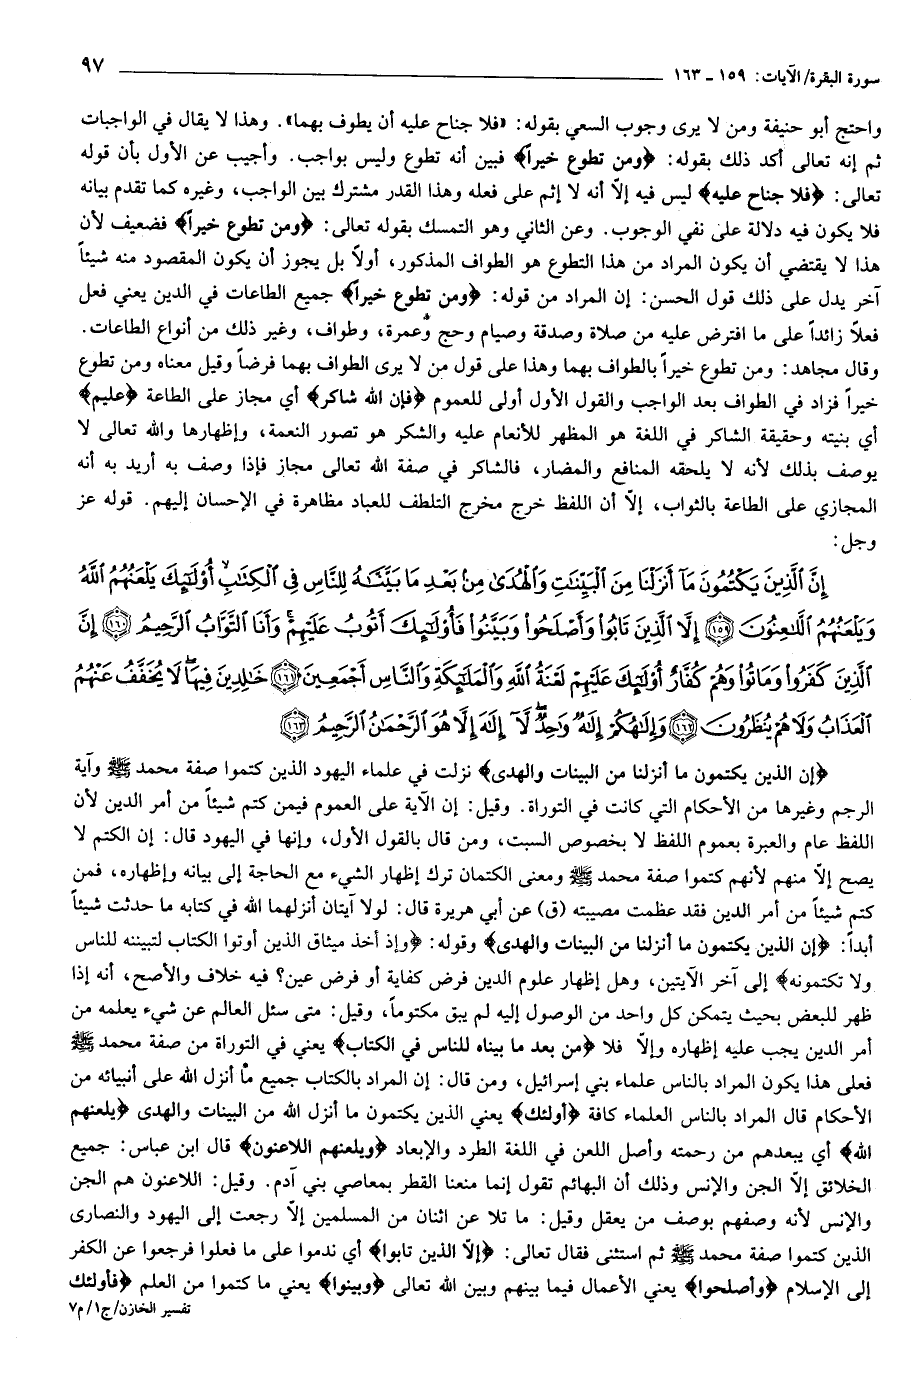 سورة البقرة/ الآيات: ١٥٩ ـ ١٦٣ ٩٧
واحتج أبو حنيفة ومن لا يرى وجوب السعي بقوله: «فلا جناح عليه أن يطوف بهما». وهذا لا يقال في الواجبات
ثم إنه تعالى أكد ذلك بقوله: ﴿ومن تطوع خيراً﴾ فبين أنه تطوع وليس بواجب. وأجيب عن الأول بأن قوله
تعالى: ﴿فلا جناح عليه﴾ ليس فيه إلّا أنه لا إثم على فعله وهذا القدر مشترك بين الواجب، وغيره كما تقدم بيانه
فلا يكون فيه دلالة على نفي الوجوب. وعن الثاني وهو التمسك بقوله تعالى: ﴿ومن تطوع خيراً﴾ فضعيف لأن
هذا لا يقتضي أن يكون المراد من هذا التطوع هو الطواف المذكور، أولاً بل يجوز أن يكون المقصود منه شيئاً
آخر يدل على ذلك قول الحسن: إن المراد من قوله: ﴿ومن تطوع خيراً﴾ جميع الطاعات في الدين يعني فعل
فعلاً زائداً على ما افترض عليه من صلاة وصدقة وصيام وحج وعمرة، وطواف، وغير ذلك من أنواع الطاعات.
وقال مجاهد: ومن تطوع خيراً بالطواف بهما وهذا على قول من لا يرى الطواف بهما فرضاً وقيل معناه ومن تطوع
خيراً فزاد في الطواف بعد الواجب والقول الأول أولى للعموم ﴿فإن الله شاكر﴾ أي مجاز على الطاعة ﴿عليم﴾
أي بنيته وحقيقة الشاكر في اللغة هو المظهر للأنعام عليه والشكر هو تصور النعمة، وإظهارها والله تعالى لا
يوصف بذلك لأنه لا يلحقه المنافع والمضار، فالشاكر في صفة الله تعالى مجاز فإذا وصف به أريد به أنه
المجازي على الطاعة بالثواب، إلّا أن اللفظ خرج مخرج التلطف للعباد مظاهرة في الإحسان إليهم. قوله عز
وجل:
إِنَّ الَّذِينَ يَكْتُمُونَ مَا أَنزَلْنَا مِنَ الْبَيِّنَاتِ وَالْهُدَىٰ مِنْ بَعْدِ مَا بَيَّنَّاهُ لِلنَّاسِ فِي الْكِتَابِ أُولَٰئِكَ يَلْعَنُهُمُ اللَّهُ
وَيَلْعَنُهُمُ اللَّاعِنُونَ ﴿١٥٩﴾ إِلَّا الَّذِينَ تَابُوا وَأَصْلَحُوا وَبَيَّنُوا فَأُولَٰئِكَ أَتُوبُ عَلَيْهِمْ وَأَنَا التَّوَّابُ الرَّحِيمُ ﴿١٦٠﴾ إِنَّ
الَّذِينَ كَفَرُوا وَمَاتُوا وَهُمْ كُفَّارٌ أُولَٰئِكَ عَلَيْهِمْ لَعْنَةُ اللَّهِ وَالْمَلَائِكَةِ وَالنَّاسِ أَجْمَعِينَ ﴿١٦١﴾ خَالِدِينَ فِيهَا لَا يُخَفَّفُ عَنْهُمُ
الْعَذَابُ وَلَا هُمْ يُنظَرُونَ ﴿١٦٢﴾ وَإِلَٰهُكُمْ إِلَٰهٌ وَاحِدٌ لَّا إِلَٰهَ إِلَّا هُوَ الرَّحْمَٰنُ الرَّحِيمُ ﴿١٦٣﴾
﴿إن الذين يكتمون ما أنزلنا من البينات والهدى﴾ نزلت في علماء اليهود الذين كتموا صفة محمد ﷺ وآية
الرجم وغيرها من الأحكام التي كانت في التوراة. وقيل: إن الآية على العموم فيمن كتم شيئاً من أمر الدين لأن
اللفظ عام والعبرة بعموم اللفظ لا بخصوص السبت، ومن قال بالقول الأول، وإنها في اليهود قال: إن الكتم لا
يصح إلّا منهم لأنهم كتموا صفة محمد ﷺ ومعنى الكتمان ترك إظهار الشيء مع الحاجة إلى بيانه وإظهاره، فمن
كتم شيئاً من أمر الدين فقد عظمت مصيبته (ق) عن أبي هريرة قال: لولا آيتان أنزلهما الله في كتابه ما حدثت شيئاً
أبداً: ﴿إن الذين يكتمون ما أنزلنا من البينات والهدى﴾ وقوله: ﴿وإذ أخذ ميثاق الذين أوتوا الكتاب لتبيننه للناس
ولا تكتمونه﴾ إلى آخر الآيتين، وهل إظهار علوم الدين فرض كفاية أو فرض عين؟ فيه خلاف والأصح، أنه إذا
ظهر للبعض بحيث يتمكن كل واحد من الوصول إليه لم يبق مكتوماً، وقيل: متى سئل العالم عن شيء يعلمه من
أمر الدين يجب عليه إظهاره وإلّا فلا ﴿من بعد ما بيناه للناس في الكتاب﴾ يعني في التوراة من صفة محمد ﷺ
فعلى هذا يكون المراد بالناس علماء بني إسرائيل، ومن قال: إن المراد بالكتاب جميع ما أنزل الله على أنبيائه من
الأحكام قال المراد بالناس العلماء كافة ﴿أولئك﴾ يعني الذين يكتمون ما أنزل الله من البينات والهدى ﴿يلعنهم
الله﴾ أي يبعدهم من رحمته وأصل اللعن في اللغة الطرد والإبعاد ﴿ويلعنهم اللاعنون﴾ قال ابن عباس: جميع
الخلائق إلّا الجن والإنس وذلك أن البهائم تقول إنما منعنا القطر بمعاصي بني آدم. وقيل: اللاعنون هم الجن
والإنس لأنه وصفهم بوصف من يعقل وقيل: ما تلا عن اثنان من المسلمين إلّا رجعت إلى اليهود والنصارى
الذين كتموا صفة محمد ﷺ ثم استثنى فقال تعالى: ﴿إلّا الذين تابوا﴾ أي ندموا على ما فعلوا فرجعوا عن الكفر
إلى الإسلام ﴿وأصلحوا﴾ يعني الأعمال فيما بينهم وبين الله تعالى ﴿وبينوا﴾ يعني ما كتموا من العلم ﴿فأولئك
تفسير الخازن/ ج١/ م٧